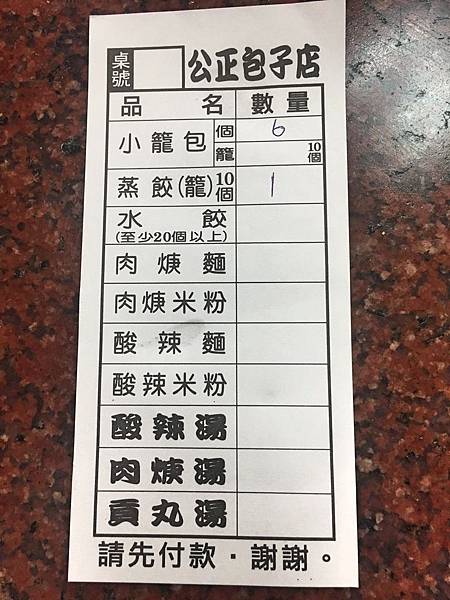 桌號 公正包子店
品名 數量
小籠包 個 6
籠 10個
蒸餃(籠)10個 1
水餃
(至少20個以上)
肉焿麵
肉焿米粉
酸辣麵
酸辣米粉
酸辣湯
肉焿湯
貢丸湯
請先付款·謝謝。